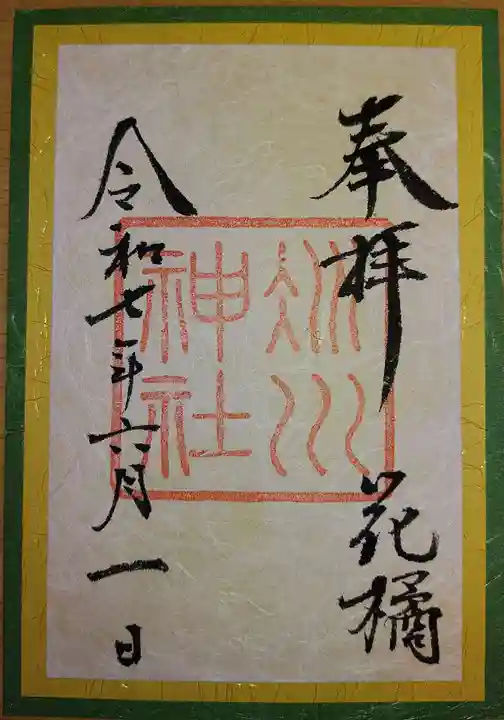 奉拝 花橘
氷川
神社
令和七年六月一日